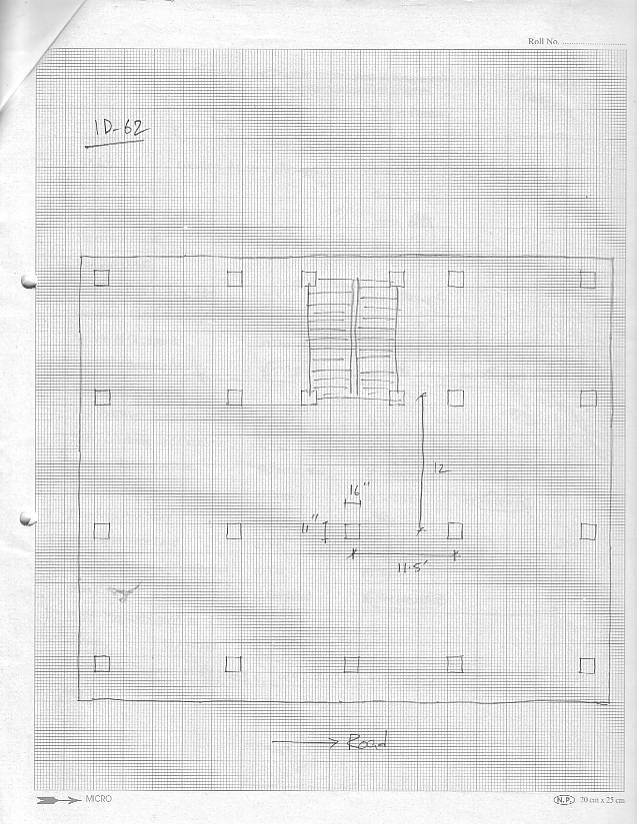 Roll No. ........................
1D-62
12
16"
11"
11.5'
Road
MICRO
N.P. 20 cm x 25 cm